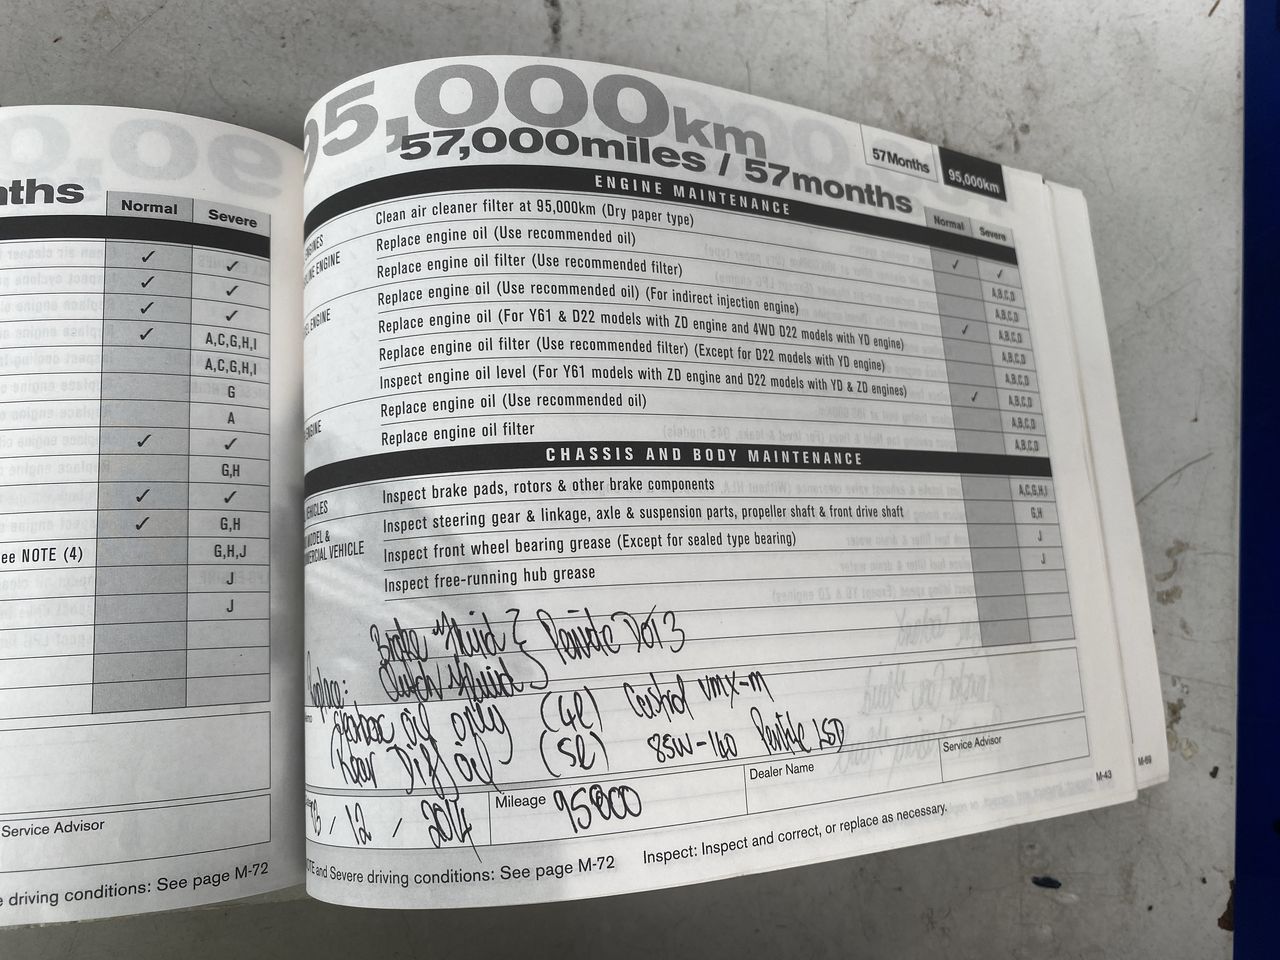 nths
Normal
Severe
✓ ✓
✓ ✓
✓ ✓
✓ A,C,G,H,I
A,C,G,H,I
G
A
✓ ✓
G,H
✓ ✓
✓ G,H
ee NOTE (4) G,H,J
J
J
Service Advisor
driving conditions: See page M-72
95,000km
57,000miles / 57months
57Months
95,000km
ENGINE MAINTENANCE
Normal
Severe
Clean air cleaner filter at 95,000km (Dry paper type) ✓ ✓
Replace engine oil (Use recommended oil) A,B,C,D
Replace engine oil filter (Use recommended filter) A,B,C,D
Replace engine oil (Use recommended oil) (For indirect injection engine) ✓ A,B,C,D
Replace engine oil (For Y61 & D22 models with ZD engine and 4WD D22 models with YD engine) A,B,C,D
Replace engine oil filter (Use recommended filter) (Except for D22 models with YD engine) A,B,C,D
Inspect engine oil level (For Y61 models with ZD engine and D22 models with YD & ZD engines) ✓ A,B,C,D
Replace engine oil (Use recommended oil) A,B,C,D
Replace engine oil filter A,B,C,D
CHASSIS AND BODY MAINTENANCE
VEHICLES
MODEL &
VEHICLE
Inspect brake pads, rotors & other brake components A,C,G,H,I
Inspect steering gear & linkage, axle & suspension parts, propeller shaft & front drive shaft G,H
Inspect front wheel bearing grease (Except for sealed type bearing) J
Inspect free-running hub grease J
Brake fluid } Penrite DOT3
Clutch fluid
gearbox oil only (4L) Castrol VMX-M
Rear Diff oil (5L) 85W-140 Penrite LSD
/ 12 / 2014
Mileage 95800
Dealer Name
Service Advisor
M-43
M-69
and Severe driving conditions: See page M-72
Inspect: Inspect and correct, or replace as necessary.